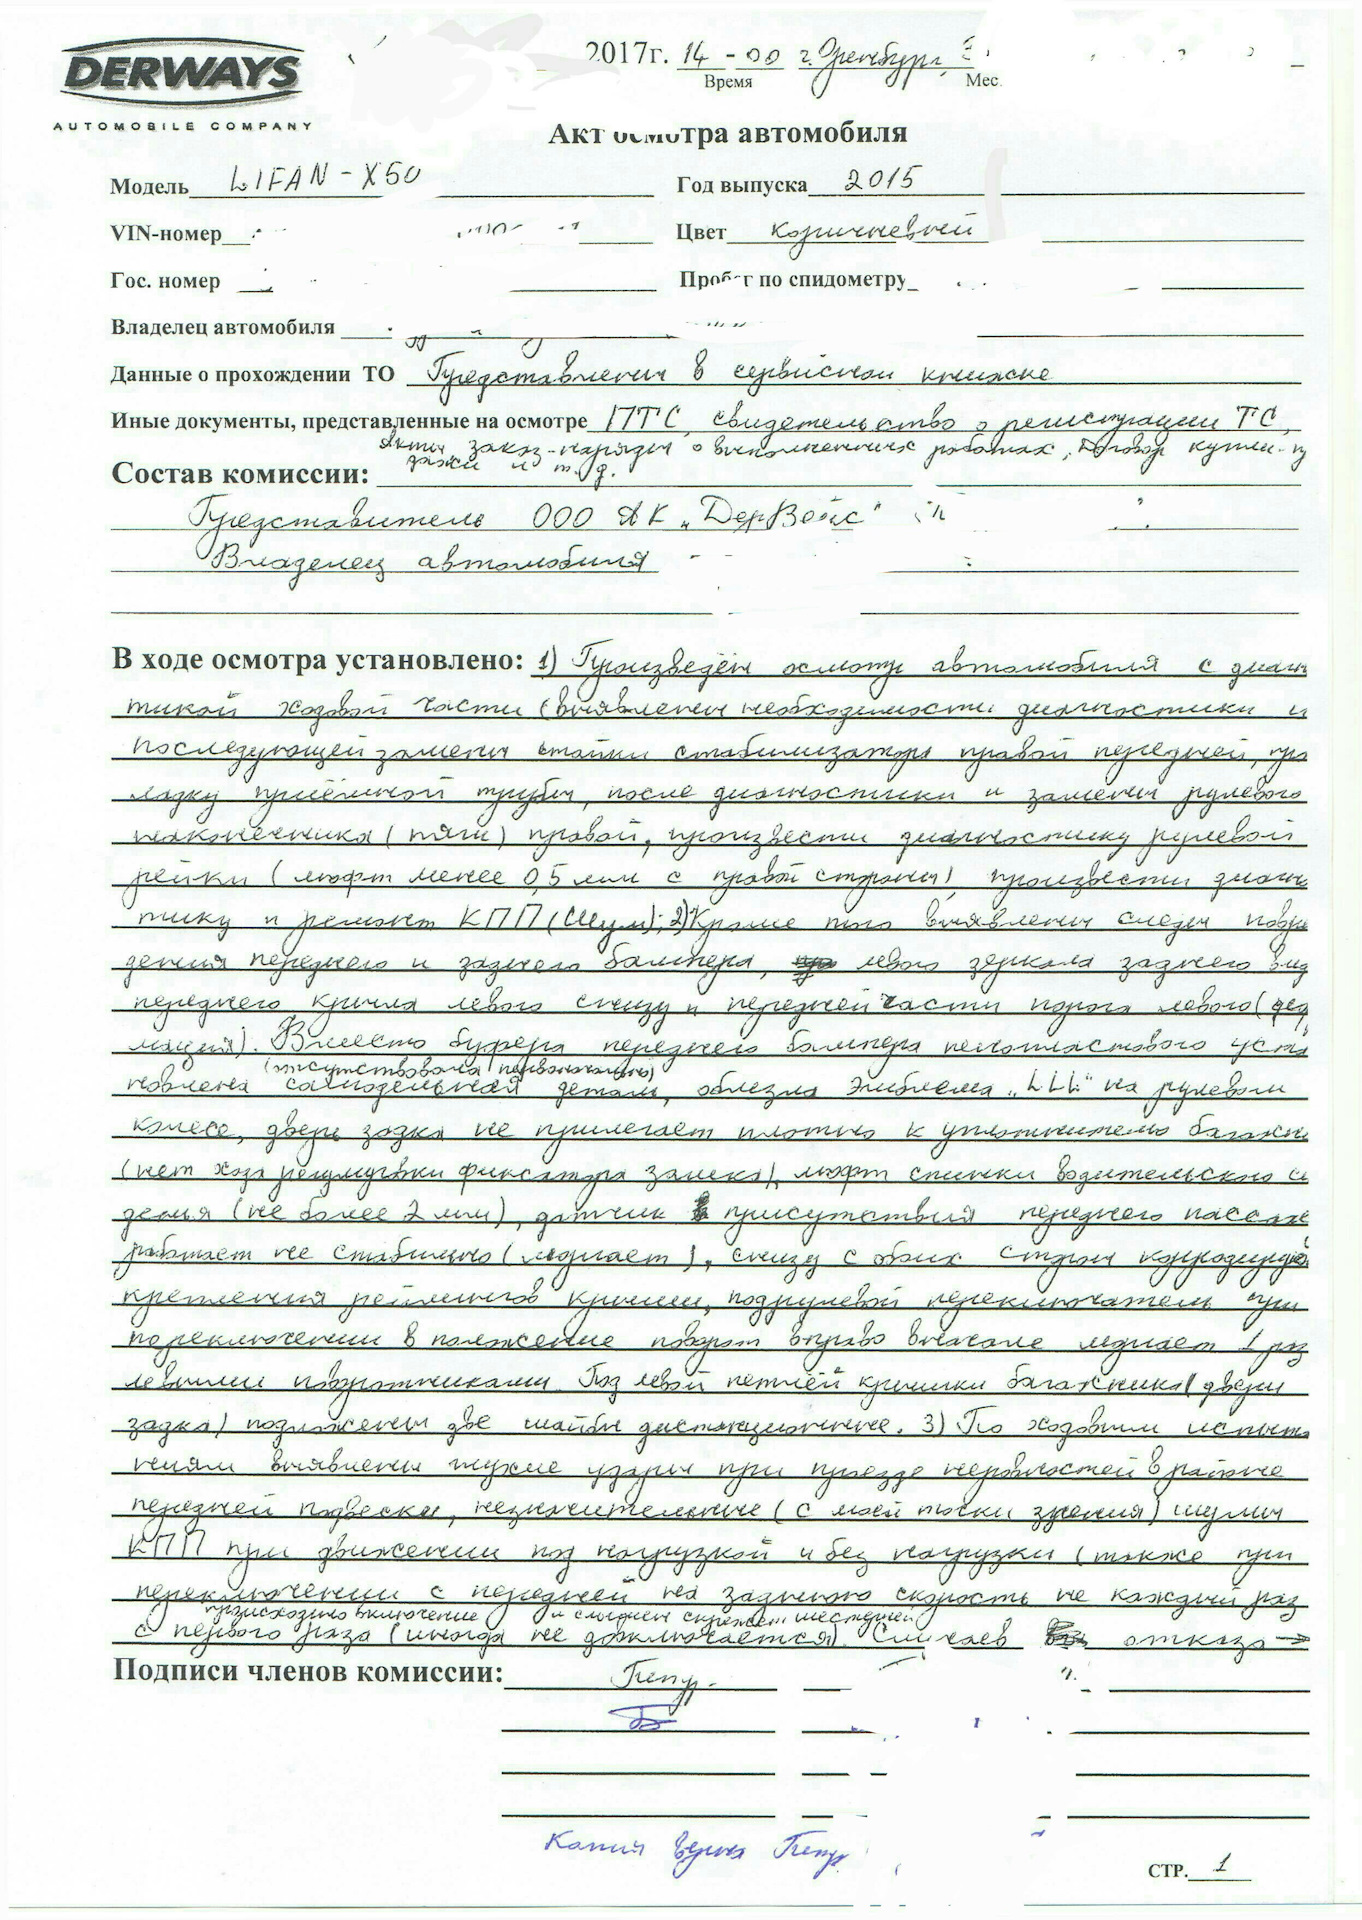 DERWAYS
AUTOMOBILE COMPANY
2017г. 14-00 г. Оренбург,
Время Мес.
Акт осмотра автомобиля
Модель LIFAN-X50 Год выпуска 2015
VIN-номер Цвет коричневый
Гос. номер Пробег по спидометру
Владелец автомобиля
Данные о прохождении ТО Представлены в сервисной книжке
Иные документы, представленные на осмотре ПТС, свидетельство о регистрации ТС,
Акты заказ-наряды о выполненных работах, Договор купли-п
дажи и т.д.
Состав комиссии:
Представитель ООО АК „ДерВейс"
Владелец автомобиля
В ходе осмотра установлено: 1) Произведён осмотр автомобиля с диагн
тикой ходовой части (выявлены необходимости диагностики и
последующей замены стойки стабилизатора правой передней, про
ладку приёмной трубы, после диагностики и замены рулевого
наконечника (тяги) правой, произвести диагностику рулевой
рейки (люфт менее 0,5 мм с правой стороны), произвести диагн
тику и ремонт КПП (Шум); 2) Кроме того выявлены следы повре
дения переднего и заднего бампера, левого зеркала заднего вид
переднего крыла левого снизу и передней части порога левого (деф
мация). Вместо буфера переднего бампера пенопластового уста
(отсутствовала первоначально)
новлена самодельная деталь, облезла эмблема „LLL" на рулевом
колесе, дверь задка не прилегает плотно к уплотнителю багажн
(нет хода регулировки фиксатора замка), люфт спинки водительского си
денья (не более 2 мм), датчик присутствия переднего пассаж
работает не стабильно (моргает), снизу с обоих сторон корродиру
крепления рейлингов крыши, подрулевой переключатель при
переключении в положение поворот вправо вначале моргает 1 раз
левыми поворотниками. Под левой петлёй крышки багажника (двери
задка) подложены две шайбы дистанционные. 3) По ходовым испыта
ниям выявлены глухие удары при проезде неровностей в районе
передней подвески, незначительные (с моей точки зрения) шумы
КПП при движении под нагрузкой и без нагрузки (также при
переключении с передней на заднюю скорость не каждый раз
происходило включение и слышен скрежет шестерней
с первого раза (иногда не доключается). Случаев отказа →
Подписи членов комиссии:
Копия верна
СТР. 1